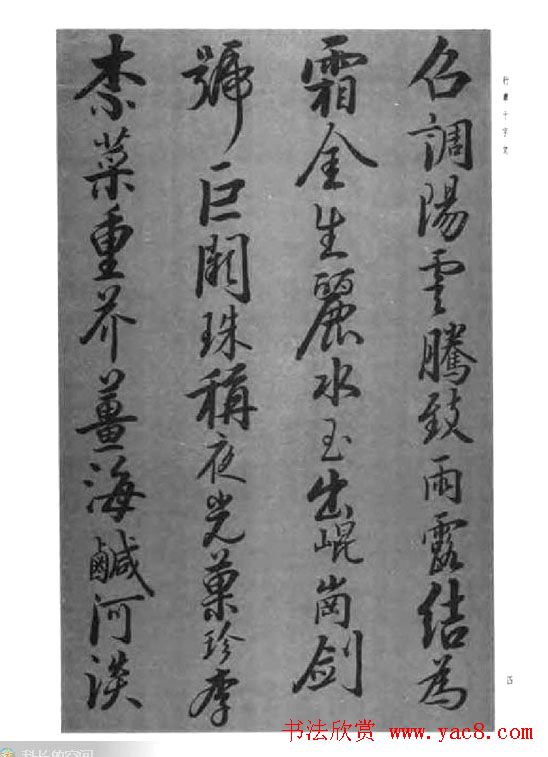 行書千字文
召調陽雲騰致雨露結為
霜金生麗水玉出崐崗劍
號巨闕珠稱夜光菓珍李
柰菜重芥薑海鹹河淡
书法欣赏 www.yac8.com